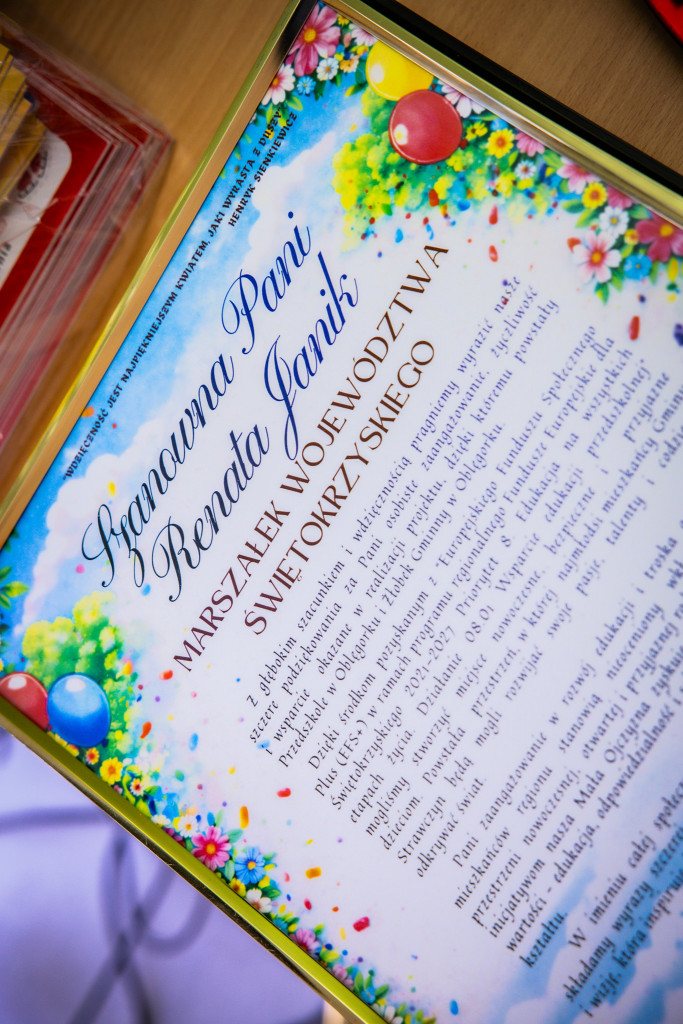 "WDZIĘCZNOŚĆ JEST NAJPIĘKNIEJSZYM KWIATEM, JAKI WYRASTA Z DUSZY
HENRYK SIENKIEWICZ
Szanowna Pani
Renata Janik
MARSZAŁEK WOJEWÓDZTWA
ŚWIĘTOKRZYSKIEGO
Z głębokim szacunkiem i wdzięcznością pragniemy wyrazić nasze
szczere podziękowania za Pani osobiste zaangażowanie, życzliwość
i wsparcie okazane w realizacji projektu, dzięki któremu powstały
Przedszkole w Oblęgorku i Żłobek Gminny w Oblęgorku.
Dzięki środkom pozyskanym z Europejskiego Funduszu Społecznego
Plus (EFS+) w ramach programu regionalnego Fundusze Europejskie dla
Świętokrzyskiego 2021-2027 Priorytet 8 Edukacja na wszystkich
etapach życia, Działanie 08.01 Wsparcie edukacji przedszkolnej
mogliśmy stworzyć miejsce nowoczesne, bezpieczne i przyjazne
dzieciom. Powstała przestrzeń, w której najmłodsi mieszkańcy Gminy
Strawczyn będą mogli rozwijać swoje pasje, talenty i
odkrywać świat.
Pani zaangażowanie w rozwój edukacji i troska o
mieszkańców regionu stanowią nieoceniony
przestrzeni nowoczesnej, otwartej i przyjaznej
inicjatywom nasza Mała Ojczyzna
wartości - edukacja, odpowiedzialność
kształtu.
W imieniu całej
składamy wyrazy
i wizję, która